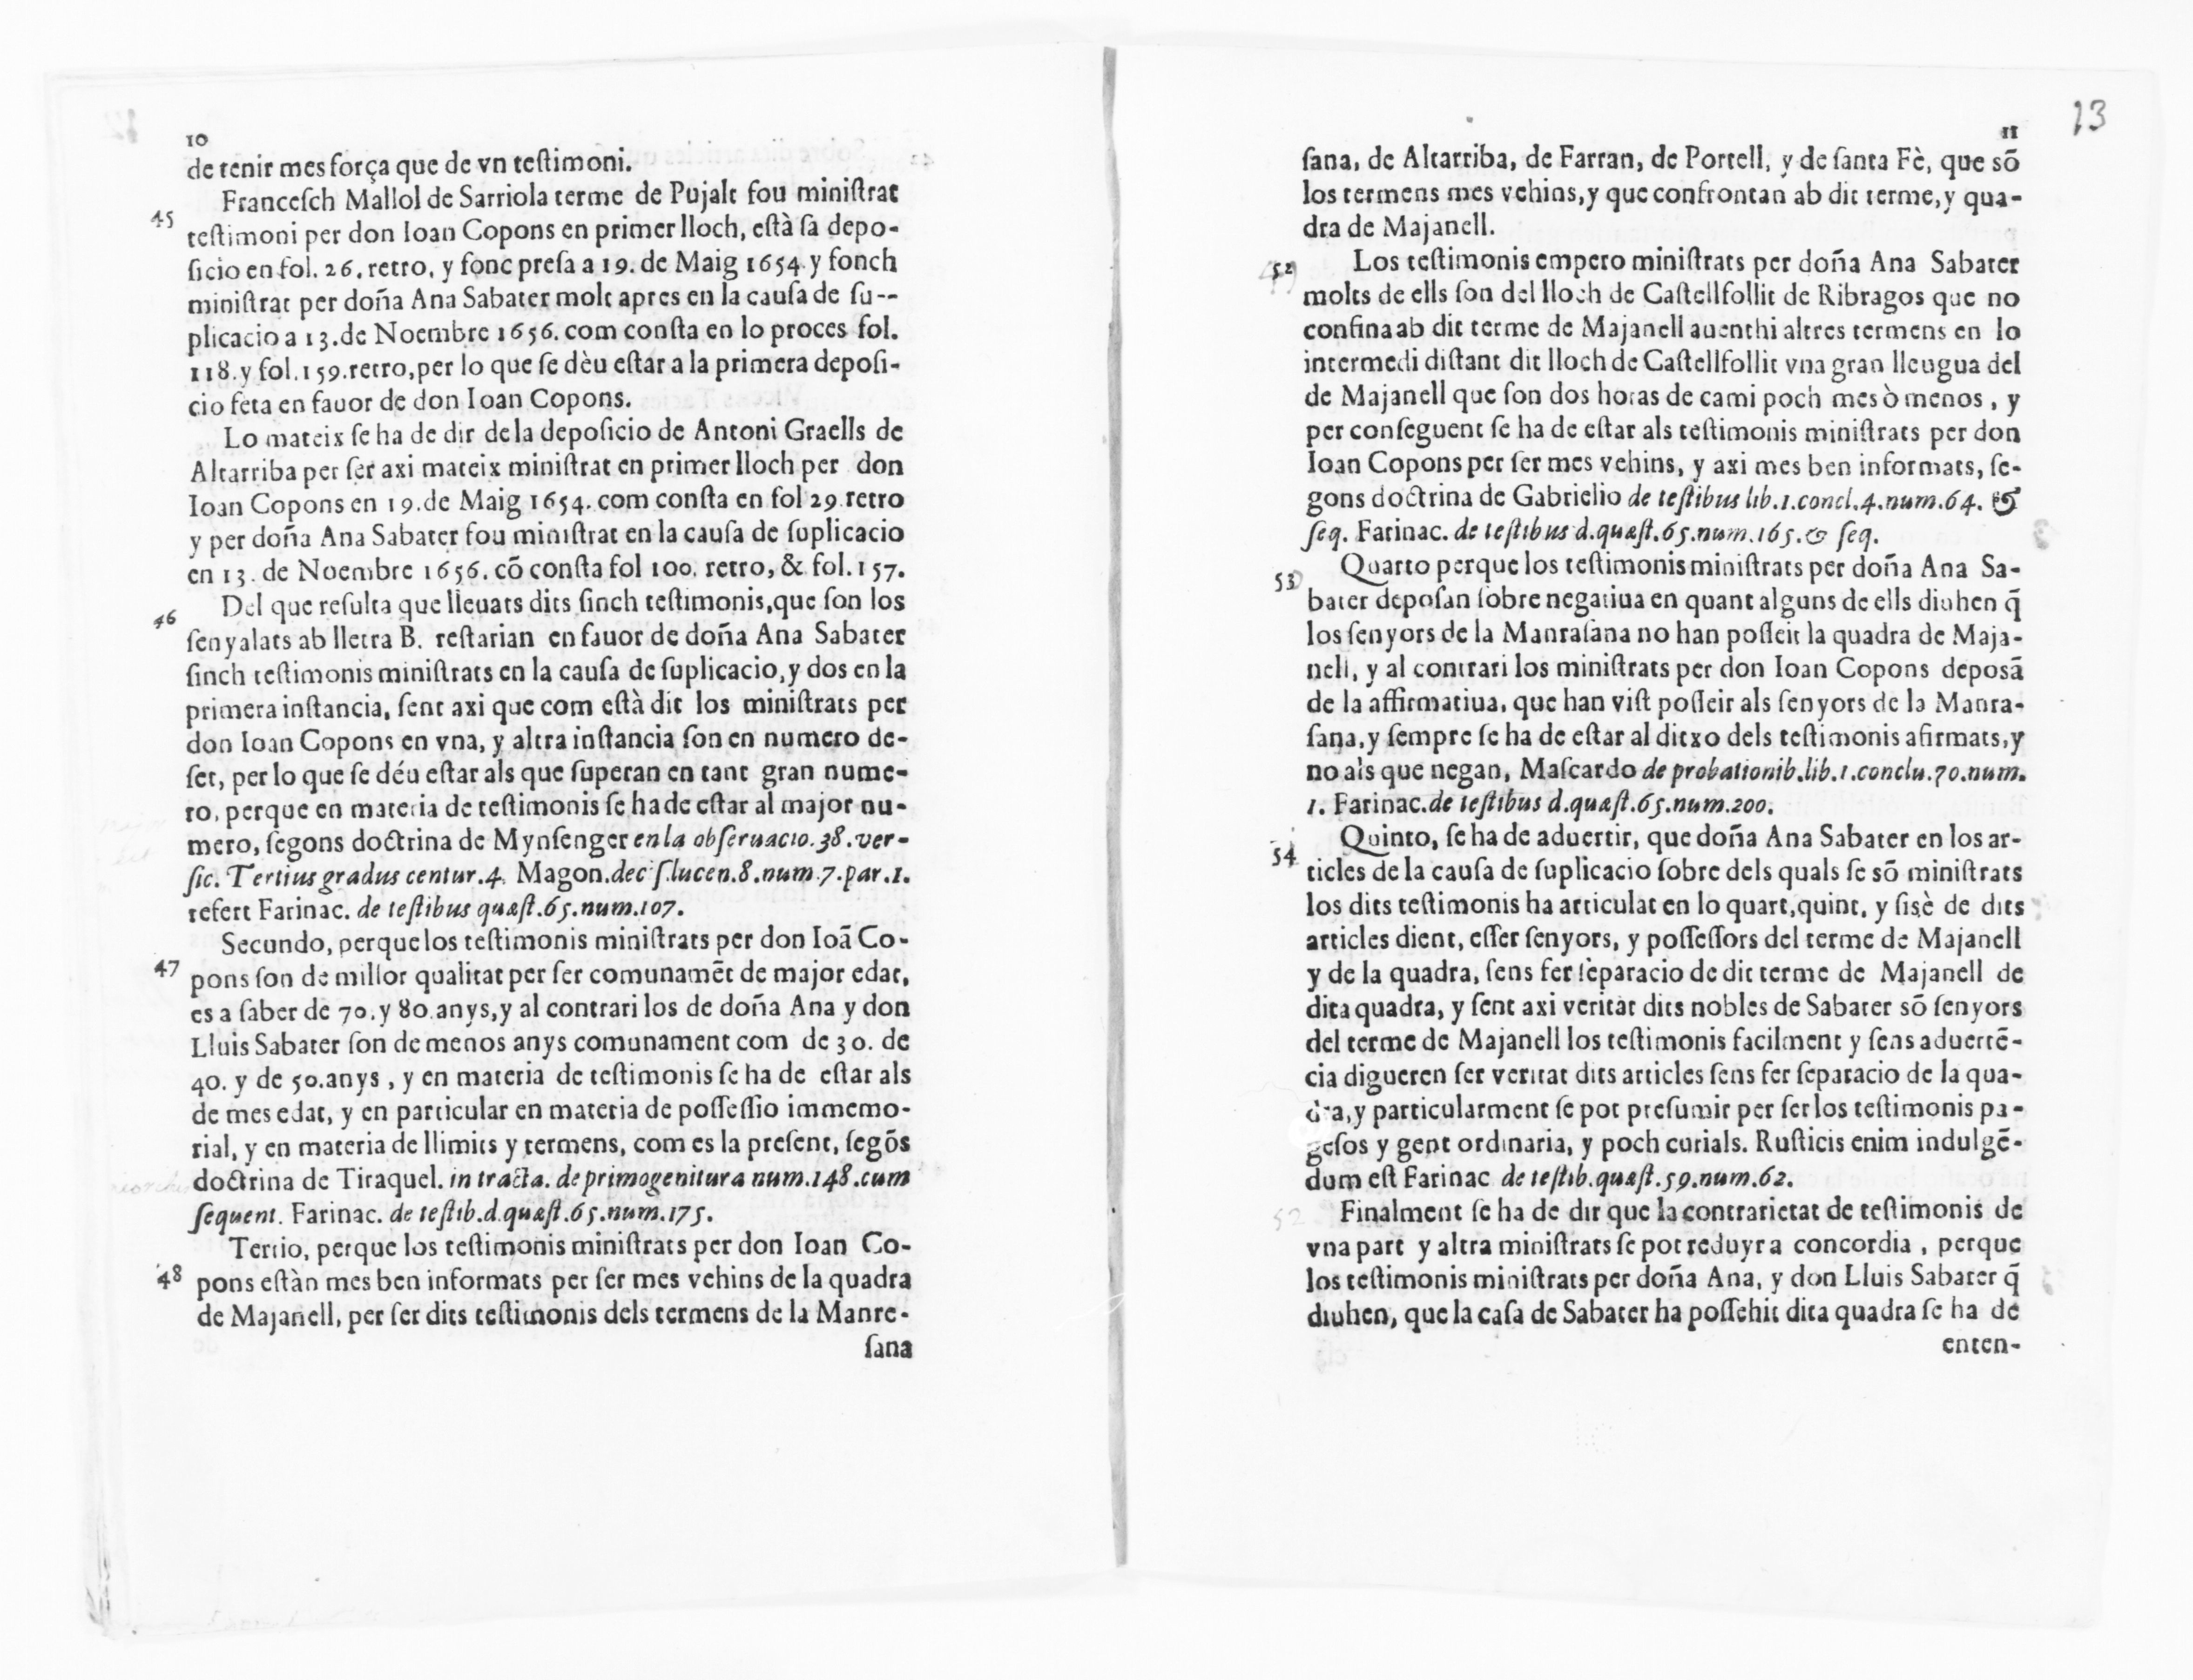 10
de tenir mes força que de vn teſtimoni.
Franceſch Mallol de Sarriola terme de Pujalt fou miniſtrat
45
teſtimoni per don Ioan Copons en primer lloch, eſtà ſa depo-
ſicio en fol. 26. retro, y fonc preſa a 19. de Maig 1654. y fonch
miniſtrat per doña Ana Sabater molt apres en la cauſa de ſu--
plicacio a 13. de Noembre 1656. com conſta en lo proces fol.
118. y fol. 159. retro, per lo que ſe dèu eſtar a la primera depoſi-
cio feta en fauor de don Ioan Copons.
Lo mateix ſe ha de dir de la depoſicio de Antoni Graells de
Altarriba per ſer axi mateix miniſtrat en primer lloch per don
Ioan Copons en 19. de Maig 1654. com conſta en fol 29. retro
y per doña Ana Sabater fou miniſtrat en la cauſa de ſuplicacio
en 13. de Noembre 1656. cō conſta fol 100. retro, & fol. 157.
46
Del que reſulta que lleuats dits ſinch teſtimonis, que ſon los
ſenyalats ab lletra B. reſtarian en fauor de doña Ana Sabater
ſinch teſtimonis miniſtrats en la cauſa de ſuplicacio, y dos en la
primera inſtancia, ſent axi que com eſtà dit los miniſtrats per
don Ioan Copons en vna, y altra inſtancia ſon en numero de-
ſet, per lo que ſe déu eſtar als que ſuperan en tant gran nume-
ro, perque en materia de teſtimonis ſe ha de eſtar al major nu-
mero, ſegons doctrina de Mynſenger en la obſeruacio. 38. ver-
ſic. Tertius gradus centur. 4. Magon. deciſ. lucen. 8. num. 7. par. 1.
refert Farinac. de teſtibus quæſt. 65. num. 107.
Secundo, perque los teſtimonis miniſtrats per don Ioā Co-
47
pons ſon de millor qualitat per ſer comunamēt de major edat,
es a ſaber de 70. y 80. anys, y al contrari los de doña Ana y don
Lluis Sabater ſon de menos anys comunament com de 30. de
40. y de 50. anys, y en materia de teſtimonis ſe ha de eſtar als
de mes edat, y en particular en materia de poſſeſſio immemo-
rial, y en materia de llimits y termens, com es la preſent, ſegōs
doctrina de Tiraquel. in tracta. de primogenitura num. 148. cum
ſequent. Farinac. de teſtib. d. quæſt. 65. num. 175.
Tertio, perque los teſtimonis miniſtrats per don Ioan Co-
48
pons eſtàn mes ben informats per ſer mes vehins de la quadra
de Majanell, per ſer dits teſtimonis dels termens de la Manre-
ſana
13
11
ſana, de Altarriba, de Farran, de Portell, y de ſanta Fè, que sō
los termens mes vehins, y que confrontan ab dit terme, y qua-
dra de Majanell.
52
Los teſtimonis empero miniſtrats per doña Ana Sabater
molts de ells ſon del lloch de Caſtellfollit de Ribragos que no
confina ab dit terme de Majanell auenthi altres termens en lo
intermedi diſtant dit lloch de Caſtellfollit vna gran lleugua del
de Majanell que ſon dos horas de cami poch mes ò menos, y
per conſeguent ſe ha de eſtar als teſtimonis miniſtrats per don
Ioan Copons per ſer mes vehins, y axi mes ben informats, ſe-
gons doctrina de Gabrielio de teſtibus lib. 1. concl. 4. num. 64. &
ſeq. Farinac. de teſtibus d. quæſt. 65. num. 165. & ſeq.
53
Quarto perque los teſtimonis miniſtrats per doña Ana Sa-
bater depoſan ſobre negatiua en quant alguns de ells diuhen q̃
los ſenyors de la Manraſana no han poſſeit la quadra de Maja-
nell, y al contrari los miniſtrats per don Ioan Copons depoſā
de la affirmatiua, que han viſt poſſeir als ſenyors de la Manra-
ſana, y ſempre ſe ha de eſtar al ditxo dels teſtimonis afirmats, y
no als que negan, Maſcardo de probationib. lib. 1. conclu. 70. num.
1. Farinac. de teſtibus d. quæſt. 65. num. 200.
54
Quinto, ſe ha de aduertir, que doña Ana Sabater en los ar-
ticles de la cauſa de ſuplicacio ſobre dels quals ſe sō miniſtrats
los dits teſtimonis ha articulat en lo quart, quint, y ſisè de dits
articles dient, eſſer ſenyors, y poſſeſſors del terme de Majanell
y de la quadra, ſens fer ſèparacio de dit terme de Majanell de
dita quadra, y ſent axi veritat dits nobles de Sabater sō ſenyors
del terme de Majanell los teſtimonis facilment y ſens aduertē-
cia digueren ſer veritat dits articles ſens fer ſeparacio de la qua-
dra, y particularment ſe pot preſumir per ſer los teſtimonis pa-
geſos y gent ordinaria, y poch curials. Ruſticis enim indulgē-
dum eſt Farinac de teſtib. quæſt. 59. num. 62.
52
Finalment ſe ha de dir que la contrarietat de teſtimonis de
vna part y altra miniſtrats ſe pot reduyr a concordia, perque
los teſtimonis miniſtrats per doña Ana, y don Lluis Sabater q̃
diuhen, que la caſa de Sabater ha poſſehit dita quadra ſe ha de
enten-